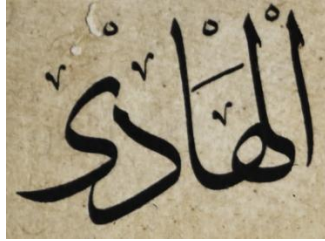 الهادى